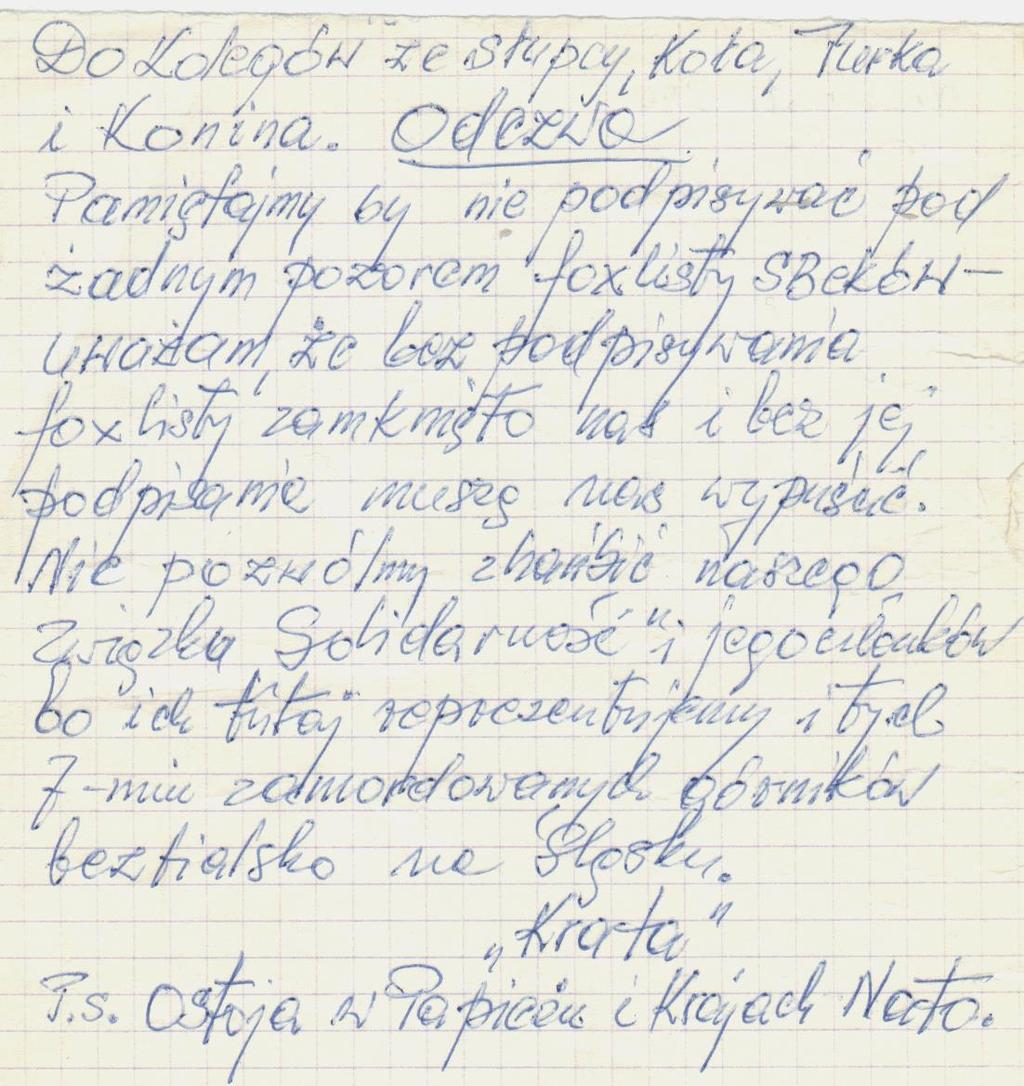 Do Kolegów ze Słupcy, Koła, Turka
i Konina. Odezwa
Pamiętajmy by nie podpisywać pod
żadnym pozorem foxlisty SBeków-
uważam, że bez podpisywania
foxlisty zamknięto nas i bez jej
podpisania muszą nas wypuścić.
Nie pozwólmy zhańbić naszego
Związku Solidarność" i jego członków
bo ich tutaj reprezentujemy i tych
7-miu zamordowanych górników
beztialsko na Śląsku.
„Krata"
P.s. Ostoja w Papieżu i Krajach Nato.